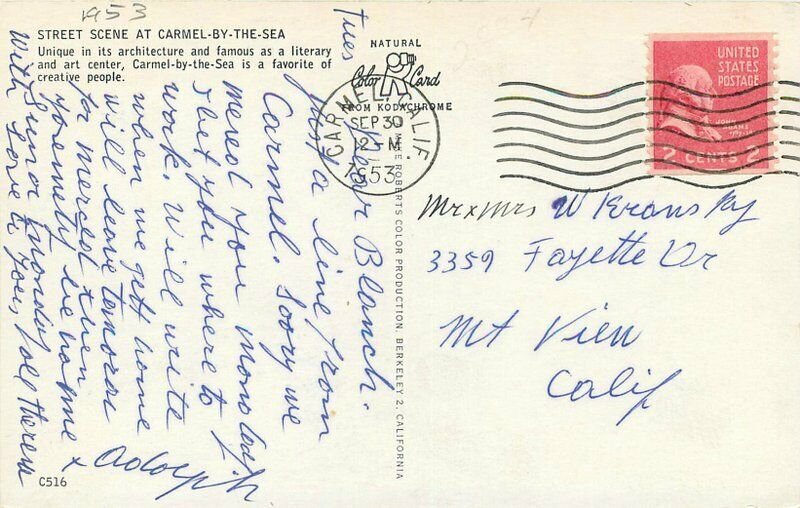 1953
STREET SCENE AT CARMEL-BY-THE-SEA
Unique in its architecture and famous as a literary
and art center, Carmel-by-the-Sea is a favorite of
creative people.
NATURAL
Color Card
FROM KODACHROME
CARMEL, CALIF.
SEP 30
12 - M
1953
UNITED
STATES
POSTAGE
JOHN
ADAMS
2 CENTS 2
Tues
Dear Blanch.
Just a line from
Carmel. Sorry we
you Monday
but you where to
work. Will write
when we gett home
will leave
for Merced then
Yosemety
Junor Monday
with Love to you, all Theresa
x Adolph
MIKE ROBERTS COLOR PRODUCTION, BERKELEY 2, CALIFORNIA
Mr x Mrs W Kransky
3359 Fayette Dr
Mt View
Calif
C516